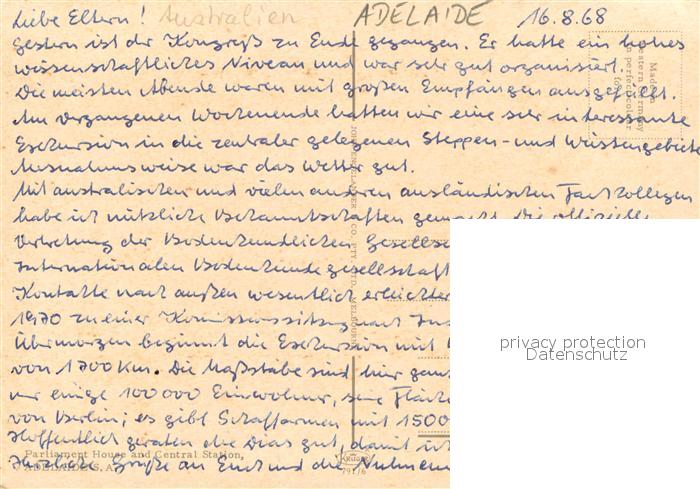 Liebe Eltern! Australien ADELAIDE 16.8.68
Gestern ist der Kongreß zu Ende gegangen. Er hatte ein hohes
wissenschaftliches Niveau und war sehr gut organisiert.
Die meisten Abende waren mit großen Empfängen ausgefüllt.
Am vergangenen Wochenende hatten wir eine sehr interessante
Exkursion in die zentraler gelegenen Steppen- und Wüstengebiete
Ausnahmsweise war das Wetter gut.
Mit australischen und vielen anderen ausländischen Fachkollegen
habe ich nützliche Bekanntschaften gemacht. Die offizielle
Vertretung der Bodenkundlichen Gesellsc
Internationalen Bodenkundegesellschaft
Kontakte nach außen wesentlich erleichter
1970 zu einer Kommissionssitzung nach
Übermorgen beginnt die Exkursion mit
von 1700 Km. Die Maßstäbe sind hier ganz
nur einige 100 000 Einwohner, seine Fläche
von Berlin; es gibt Schaffarmen mit 1500
Hoffentlich geraten die Dias gut, damit ich
Herzliche Grüße an Euch und die
Parliament House and Central Station,
ADELAIDE, S.A.
KRÜGER
791/6
Made in
Western Germany
in perfectocolor
for
CO. PTY. LTD. MELBOURNE
privacy protection
Datenschutz